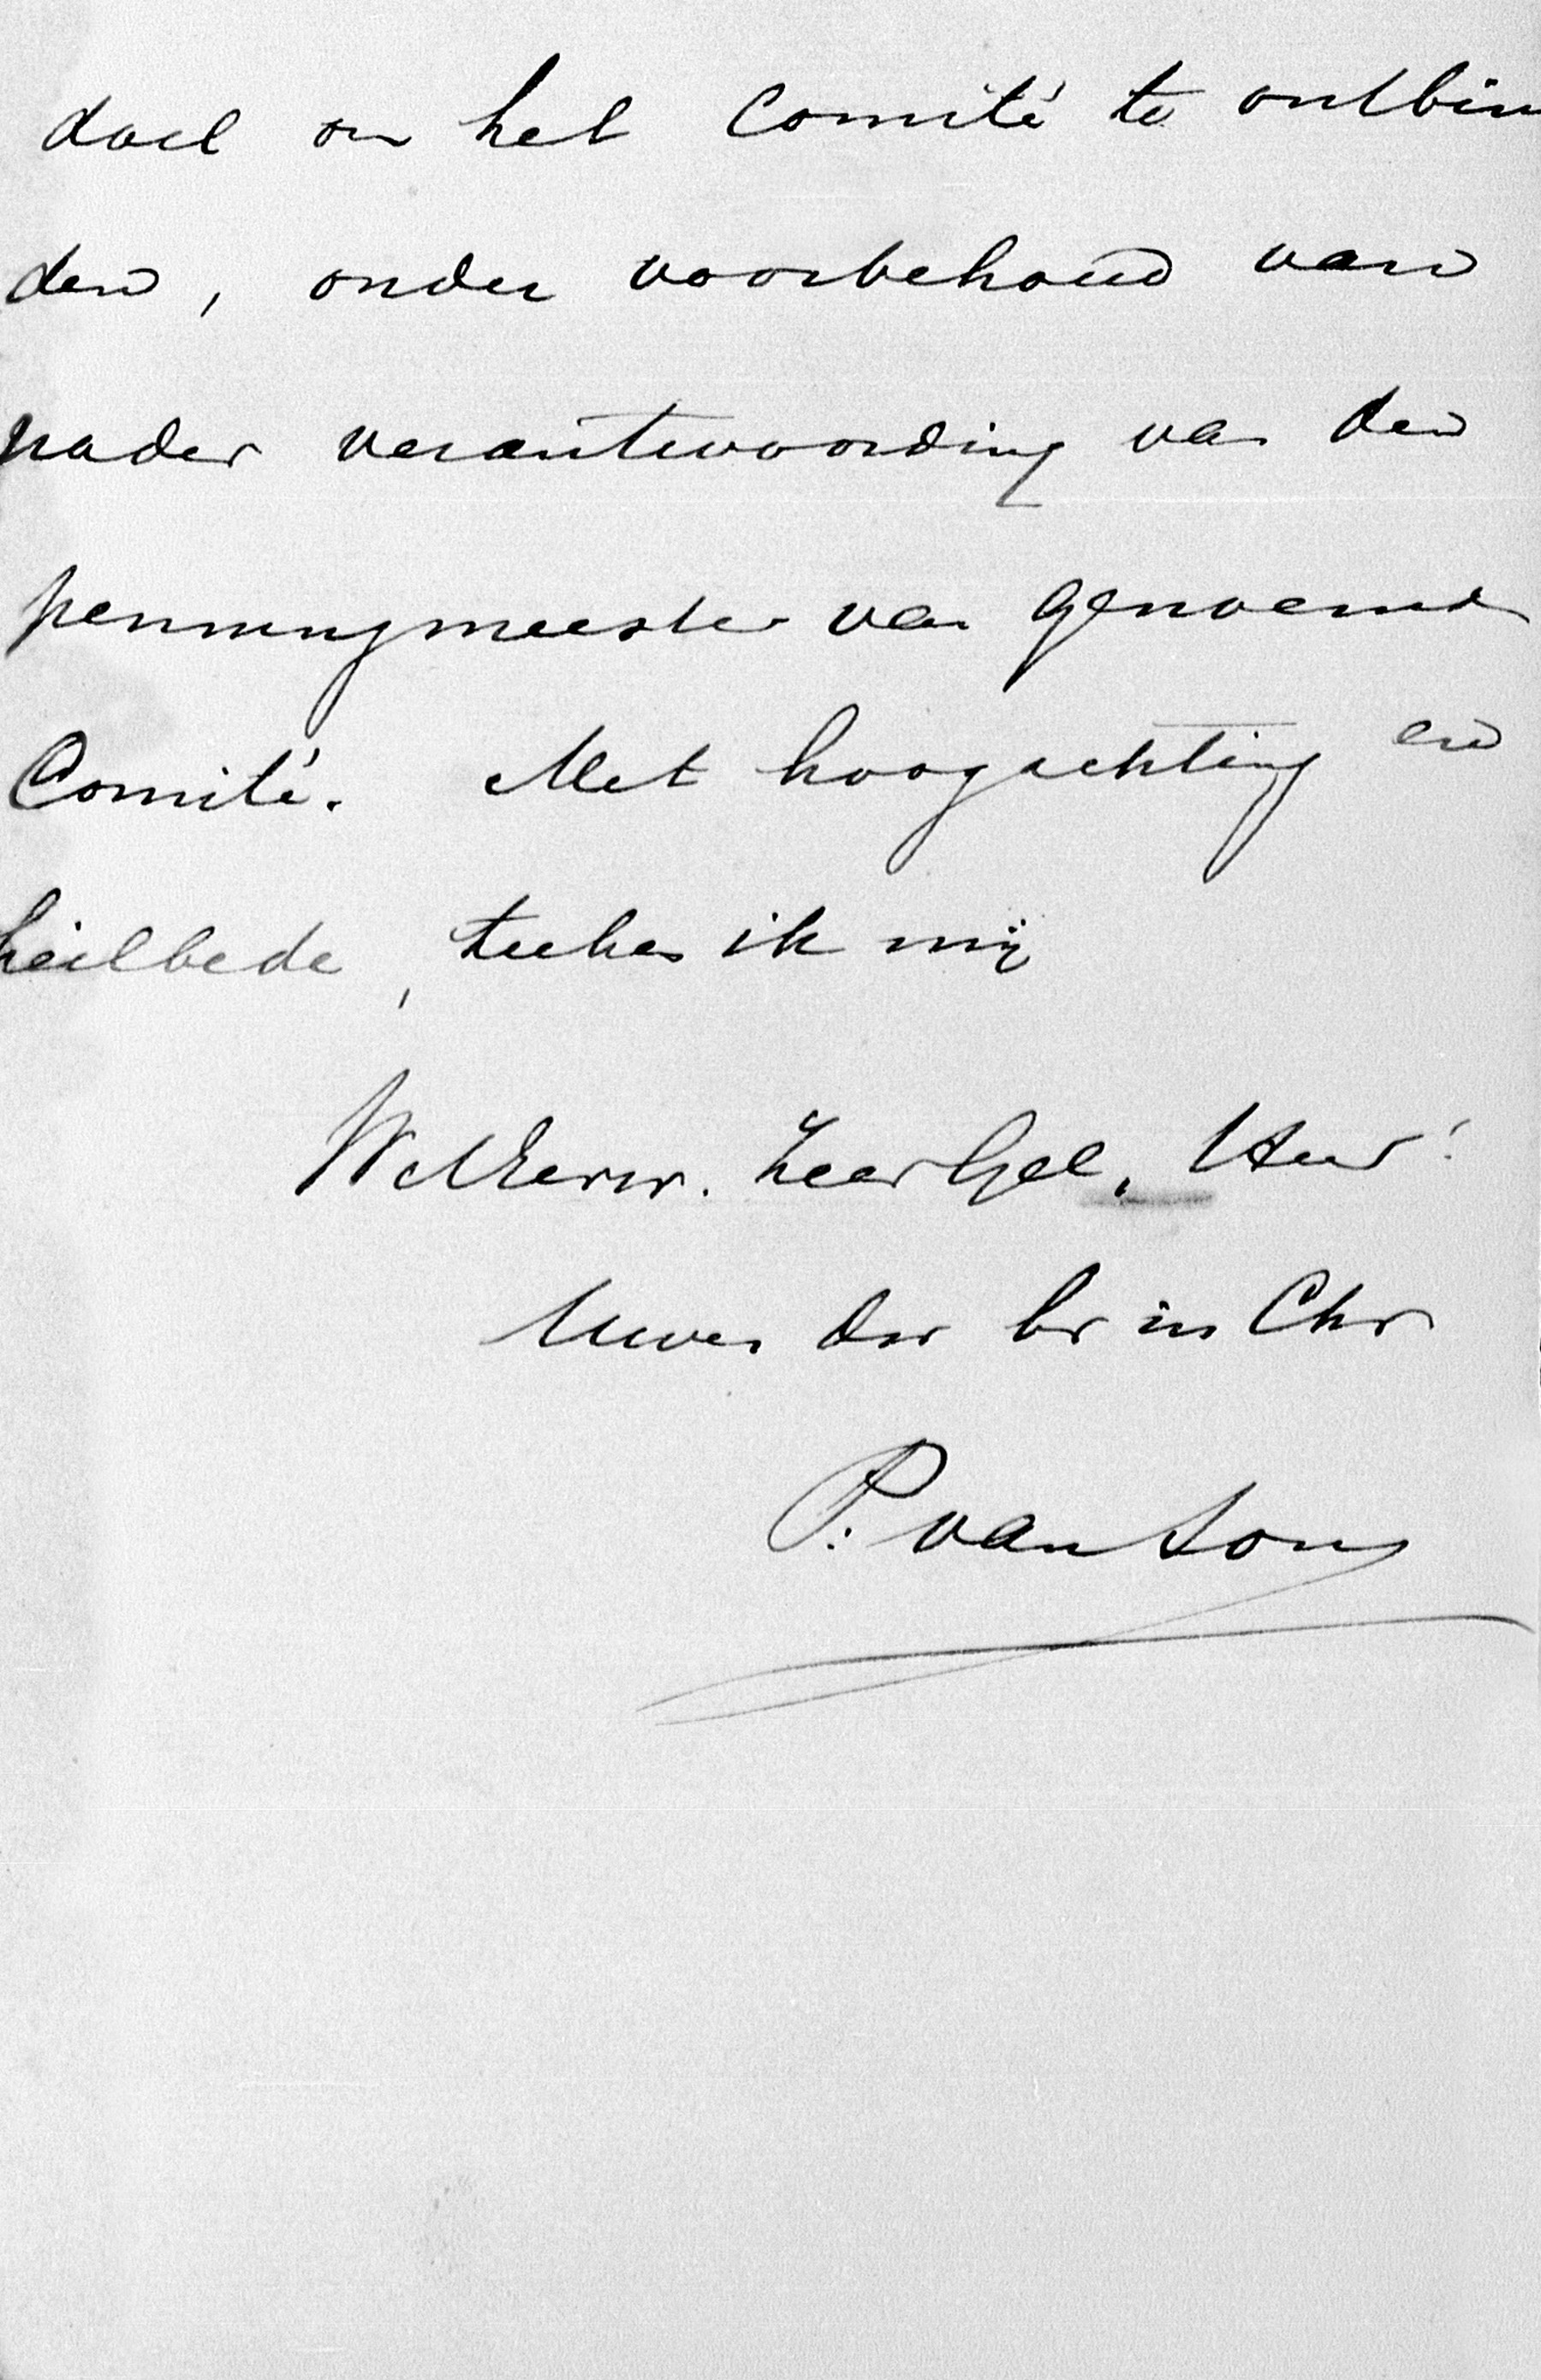 doel om het Comité te ontbin
den, onder voorbehoud van
nader verantwoording van den
penningmeester van genoemd
Comité. Met hoogachting en
heilbede, teeken ik mij
WelEerw. ZeerGel. Heer!
Uwen dw br in Chr
P. van Son